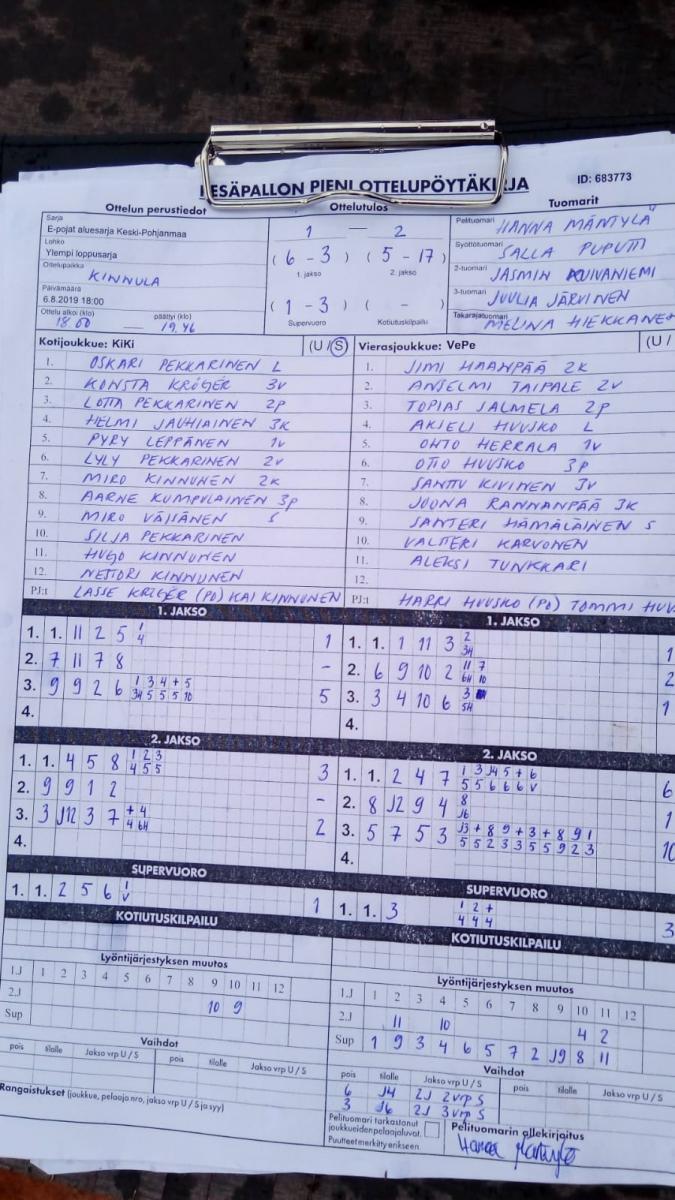 KESÄPALLON PIENI OTTELUPÖYTÄKIRJA
ID: 683773
Ottelun perustiedot
Ottelutulos
Tuomarit
Sarja
E-pojat aluesarja Keski-Pohjanmaa
Lohko
Ylempi loppusarja
Ottelupaikka KINNULA
Päivämäärä
6.8.2019 18:00
Ottelu alkoi (klo) päättyi (klo)
18.00 19.46
1 — 2
( 6 - 3 ) ( 5 - 17 )
1. jakso 2. jakso
( 1 - 3 ) ( - )
Supervuoro Kotiutuskilpailu
Pelituomari HANNA MÄNTYLÄ
Syöttötuomari SALLA PUPUTTI
2-tuomari JASMIN KUIVANIEMI
3-tuomari JUULIA JÄRVINEN
Takarajatuomari MELINA HIEKKANEN
Kotijoukkue: KiKi (U / S)
1. OSKARI PEKKARINEN L
2. KONSTA KRÖGER 3V
3. LOTTA PEKKARINEN 2P
4. HELMI JAUHIAINEN 3K
5. PYRY LEPPÄNEN 1V
6. LYLY PEKKARINEN 2V
7. MIRO KINNUNEN 2K
8. AARNE KUMPULAINEN 3P
9. MIRO VÄISÄNEN S
10. SILJA PEKKARINEN
11. HUGO KINNUNEN
12. NETTORI KINNUNEN
PJ:t LASSE KRÖGER (PO) KAI KINNUNEN
Vierasjoukkue: VePe (U /
1. JIMI HAANPÄÄ 2K
2. ANSELMI TAIPALE 2V
3. TOPIAS JALMELA 2P
4. AKSELI HUUSKO L
5. OHTO HERRALA 1V
6. OTTO HUUSKO 3P
7. SANTTU KIVINEN 3V
8. JOONA RANNANPÄÄ 3K
9. SANTERI HÄMÄLÄINEN S
10. VALTTERI KARVONEN
11. ALEKSI TUNKKARI
12.
PJ:t HARRI HUUSKO (PO) TOMMI HUU
1. JAKSO
1. 1. 11 2 5 1 4 1
2. 7 11 7 8 -
3. 9 9 2 6 1 3 4 + 5 34 5 5 5 10 5
4.
2. JAKSO
1. 1. 4 5 8 1 2 3 4 5 5 3
2. 9 9 1 2 -
3. 3 J12 3 7 + 4 4 6H 2
4.
SUPERVUORO
1. 1. 2 5 6 1 V 1
KOTIUTUSKILPAILU
1. JAKSO
1. 1. 1 11 3 2 3H 1
2. 6 9 10 2 11 7 6H 10 2
3. 3 4 10 6 3 5H 1
4.
2. JAKSO
1. 1. 2 4 7 1 3 J4 5 + 6 5 5 6 6 6 V 6
2. 8 J2 9 4 8 J6 1
3. 5 7 5 3 J3 + 8 9 + 3 + 8 9 1 5 5 2 3 3 5 5 9 2 3 10
4.
SUPERVUORO
1. 1. 3 1 2 + 4 4 4 3
KOTIUTUSKILPAILU
Lyöntijärjestyksen muutos
1.J 1 2 3 4 5 6 7 8 9 10 11 12
2.J 10 9
Sup
Vaihdot
pois tilalle Jakso vrp U / S pois tilalle Jakso vrp U / S
Rangaistukset (joukkue, pelaaja nro, jakso vrp U / S ja syy)
Lyöntijärjestyksen muutos
1.J 1 2 3 4 5 6 7 8 9 10 11 12
2.J 11 10 4 2
Sup 1 9 3 4 6 5 7 2 J9 8 11
Vaihdot
pois tilalle Jakso vrp U / S pois tilalle Jakso vrp U / S
6 J4 2J 2vrp S
3 J6 2J 3vrp S
Pelituomari tarkastanut
joukkueiden pelaajaluvat.
Puutteet merkitty erikseen.
Pelituomarin allekirjoitus
Hanna Mäntylä